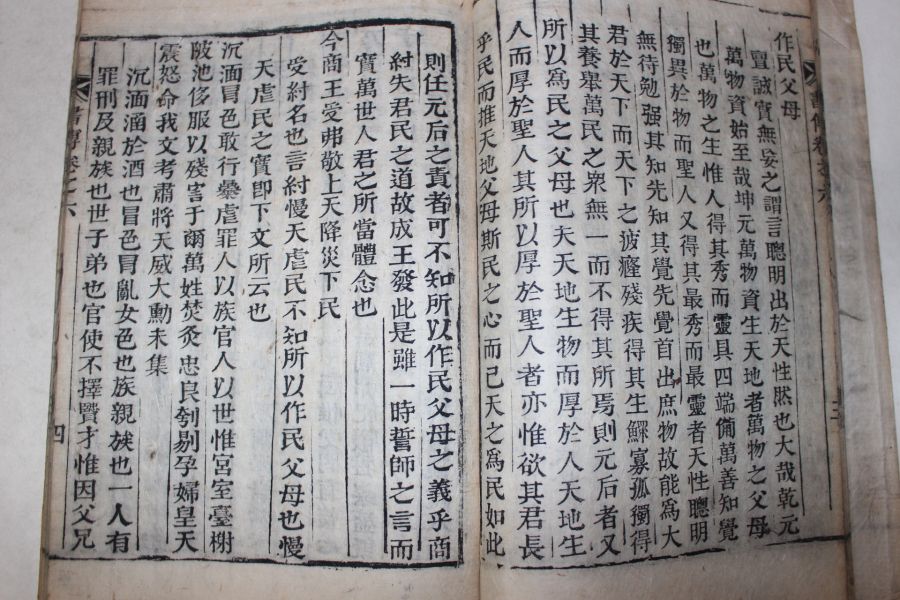 作民父母
亶誠實無妄之謂言聰明出於天性然也大哉乾元
萬物資始至哉坤元萬物資生天地者萬物之父母
也萬物之生惟人得其秀而靈具四端備萬善知覺
獨異於物而聖人又得其最秀而最靈者天性聰明
無待勉强其知先知其覺先覺首出庶物故能爲大
君於天下而天下之疲癃殘疾得其生鰥寡孤獨得
其養舉萬民之衆無一而不得其所焉則元后者又
所以爲民之父母也夫天地生物而厚於人天地生
人而厚於聖人其所以厚於聖人者亦惟欲其君長
乎民而推天地父母斯民之心而已天之爲民如此
則任元后之責者可不知所以作民父母之義乎商
紂失君民之道故成王發此是雖一時誓師之言而
實萬世人君之所當體念也
今商王受弗敬上天降災下民
受紂名也言紂慢天虐民不知所以作民父母也慢
天虐民之實即下文所云也
沉湎冒色敢行暴虐罪人以族官人以世惟宮室臺榭
陂池侈服以殘害于爾萬姓焚炙忠良刳剔孕婦皇天
震怒命我文考肅將天威大勳未集
沉湎涵於酒也冒色冒亂女色也族親族也一人有
罪刑及親族也世子弟也官使不擇賢才惟因父兄
書傳卷之六
四